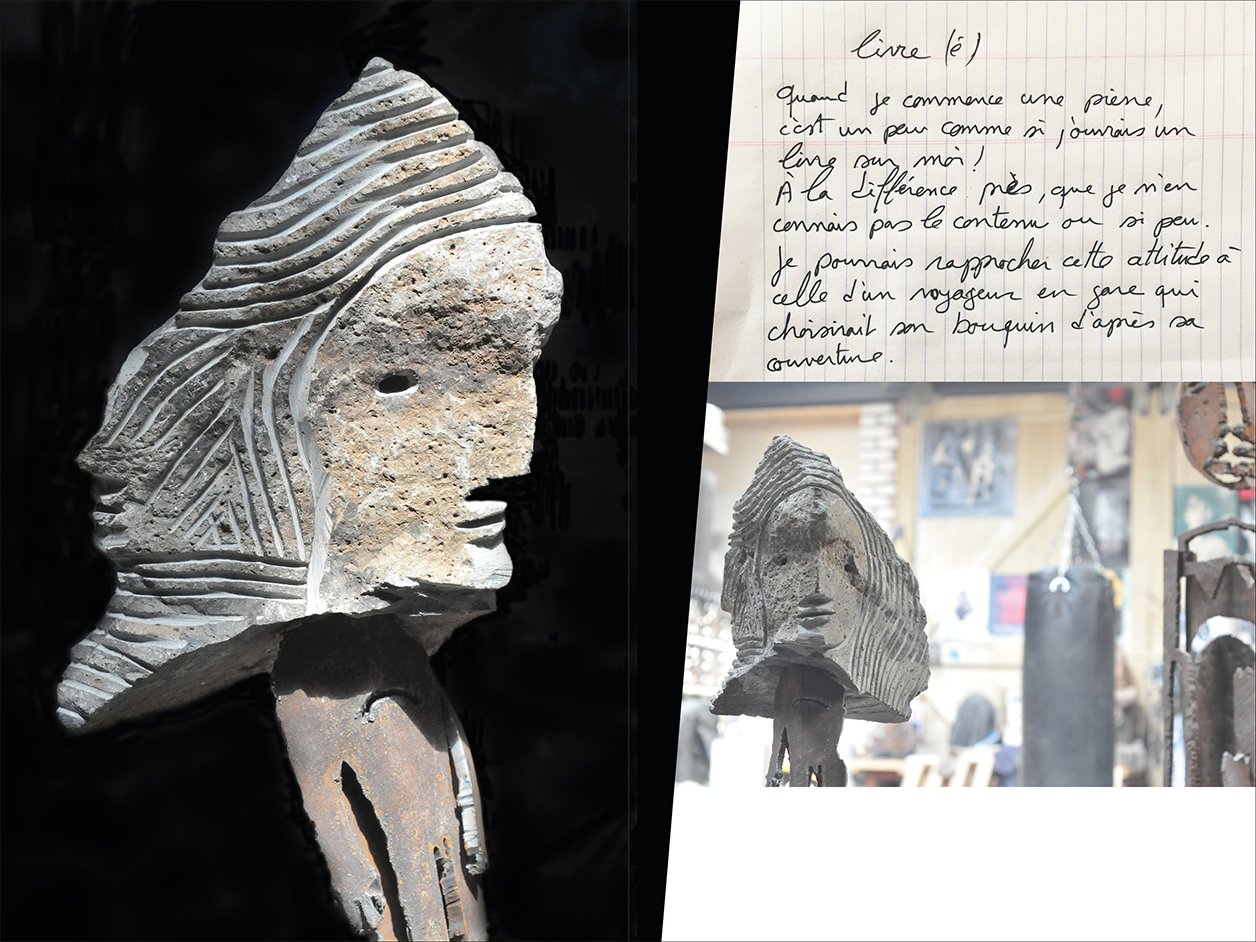 livre (é)
Quand je commence une pierre,
c'est un peu comme si j'ouvrais un
livre sur moi !
À la différence près, que je n'en
connais pas le contenu ou si peu.
Je pourrais rapprocher cette attitude à
celle d'un voyageur en gare qui
choisirait son bouquin d'après sa
couverture.